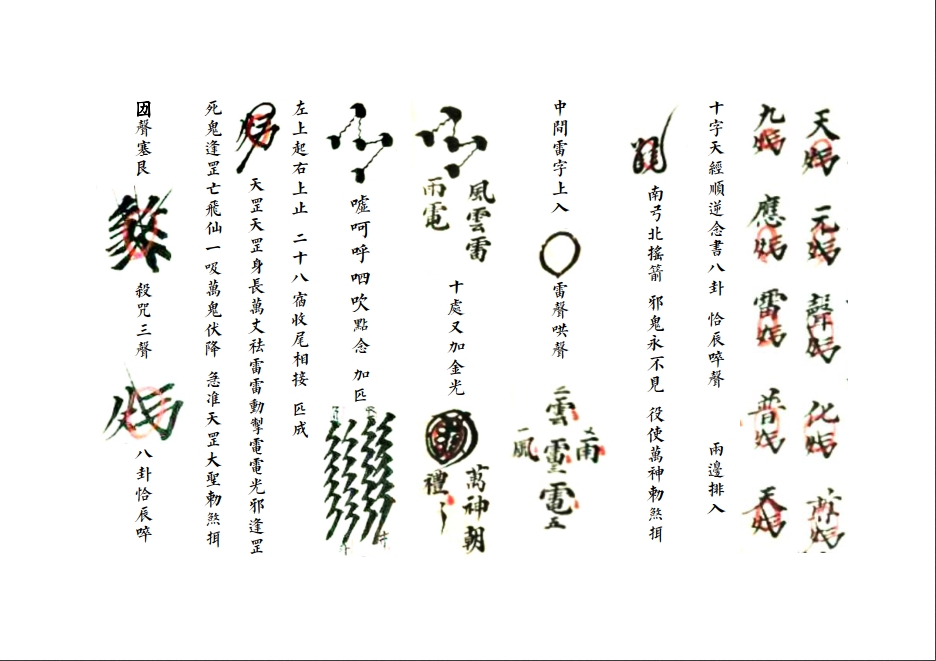 天 元 聲 化
九 應 雷 普 天
十字天經順逆念書八卦 恰辰啐聲 兩邊排入
南弓北搖箭 邪鬼永不見 役使萬神勅煞揖
中間雷字上入 雷聲哄聲
二雲
一風 雷三 乂雨
電五
風雲雷
雨電
十處又加金光
萬神朝
禮
噓呵呼呬吹點念 加匹
左上起右上止 二十八宿收尾相接 匹成
天罡天罡身長萬丈祛雷雷動掣電電光邪逢罡
死鬼逢罡亡飛仙一吸萬鬼伏降 急准天罡大聖勅煞揖
聲塞艮 殺咒三聲 八卦恰辰啐